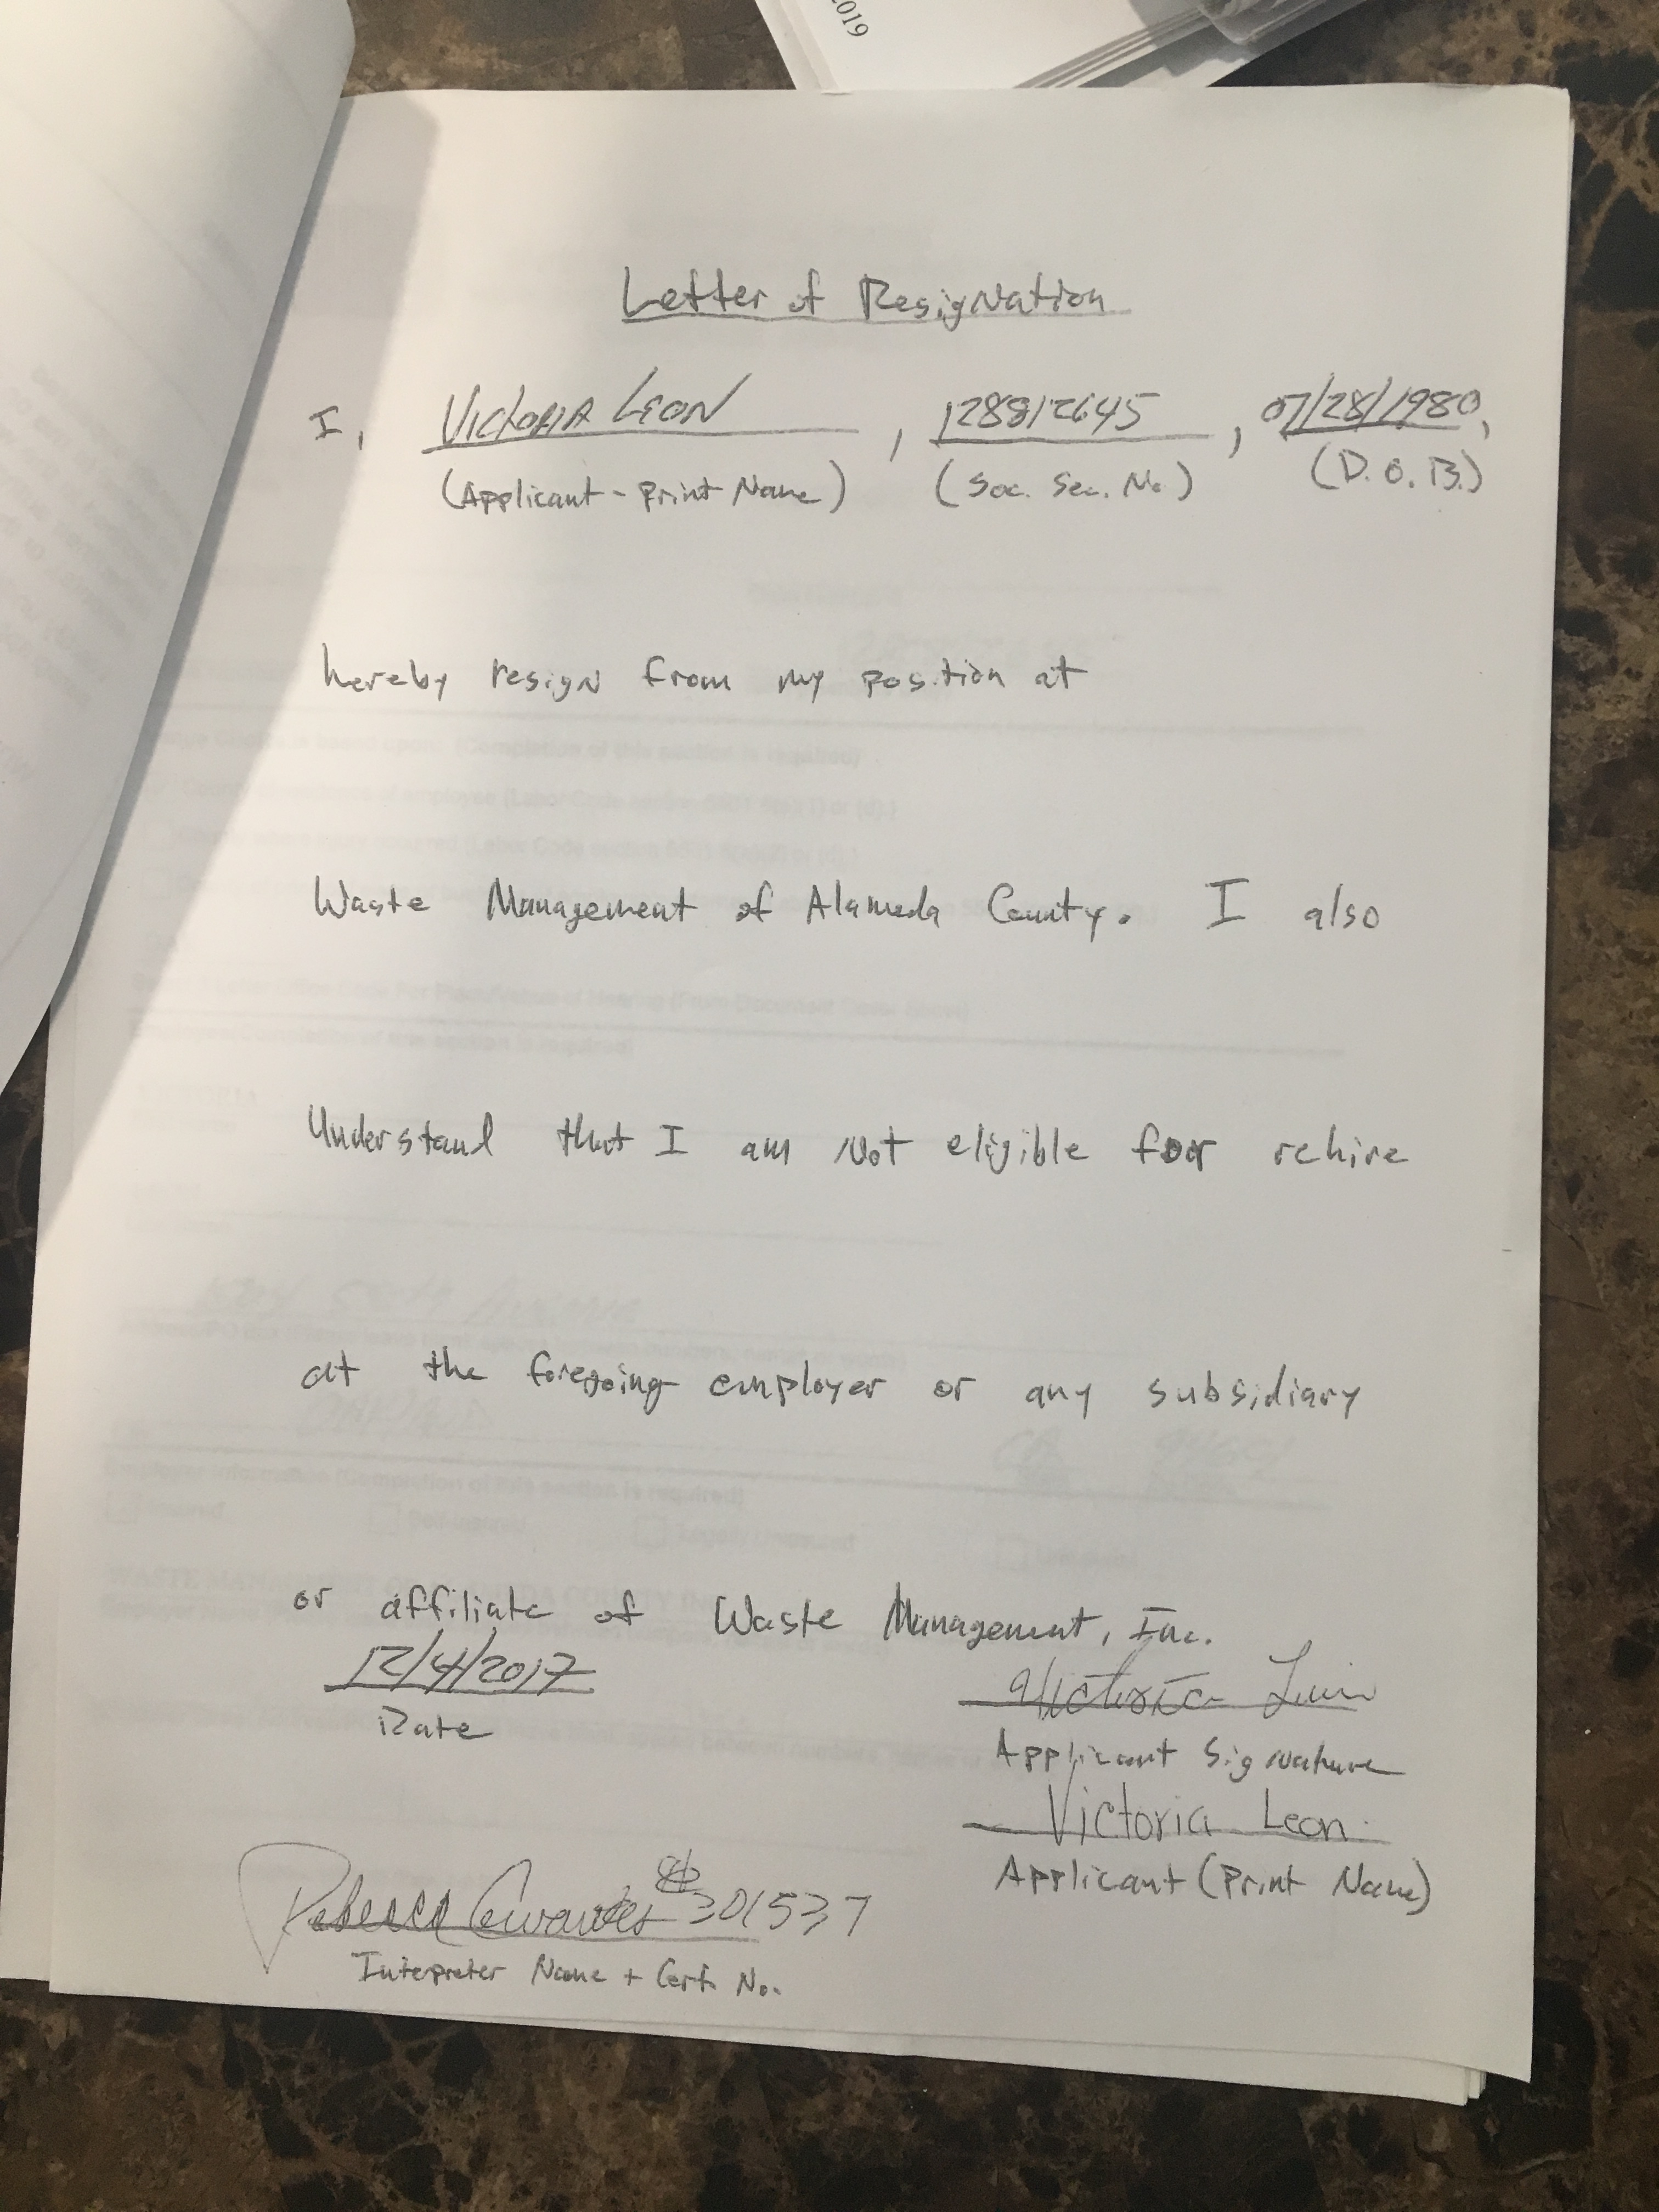 2019
Letter of Resignation
I, Victoria Leon, 128812645, 07/28/1980,
(Applicant - Print Name) (Soc. Sec. No) (D.O.B.)
hereby resign from my position at
Waste Management of Alameda County. I also
Understand that I am Not eligible for rehire
at the foregoing employer or any subsidiary
or affiliate of Waste Management, Inc.
12/4/2017 Victoria Leon
Date Applicant Signature
Victoria Leon
Applicant (Print Name)
Rebecca Cervantes 301537
Interpreter Name + Cert. No.